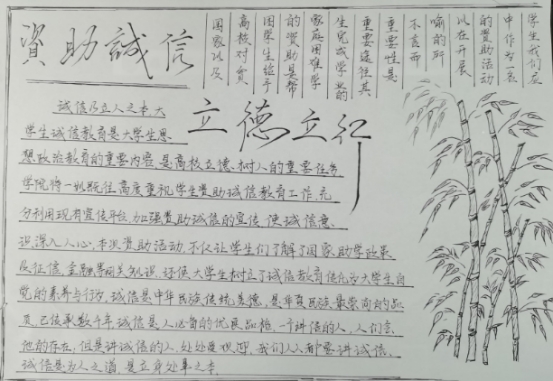 資助誠信
学生我们应
中作为一
的资助活动
以在开展
喻的所
不言而
重要性是
重要途径其
生完成学业的
家庭困难学
的资助是帮
困学生给予
高校对贫
国家以及
立德立
诚信乃立人之本大
学生诚信教育是大学生思
想政治教育的重要内容,是高校立德、树人的重要任务
学院将一如既往,高度重视学生资助诚信教育工作,充
分利用现有宣传平台,加强资助诚信的宣传,使诚信意
识深入人心,本次资助活动,不仅让学生们了解了国家助学政策
及征信、金融等相关知识,还使大学生树立了诚信教育转化为大学生自
觉的素养与行为,诚信是中华民族传统美德,是华夏民族最崇尚的品
质,已传承数千年诚信是人必备的优良品格,一个讲信的人,人们
他的存在,但是讲诚信的人,处处受欢迎,我们人人都要讲诚信,
诚信是为人之道,是立身处事之本,